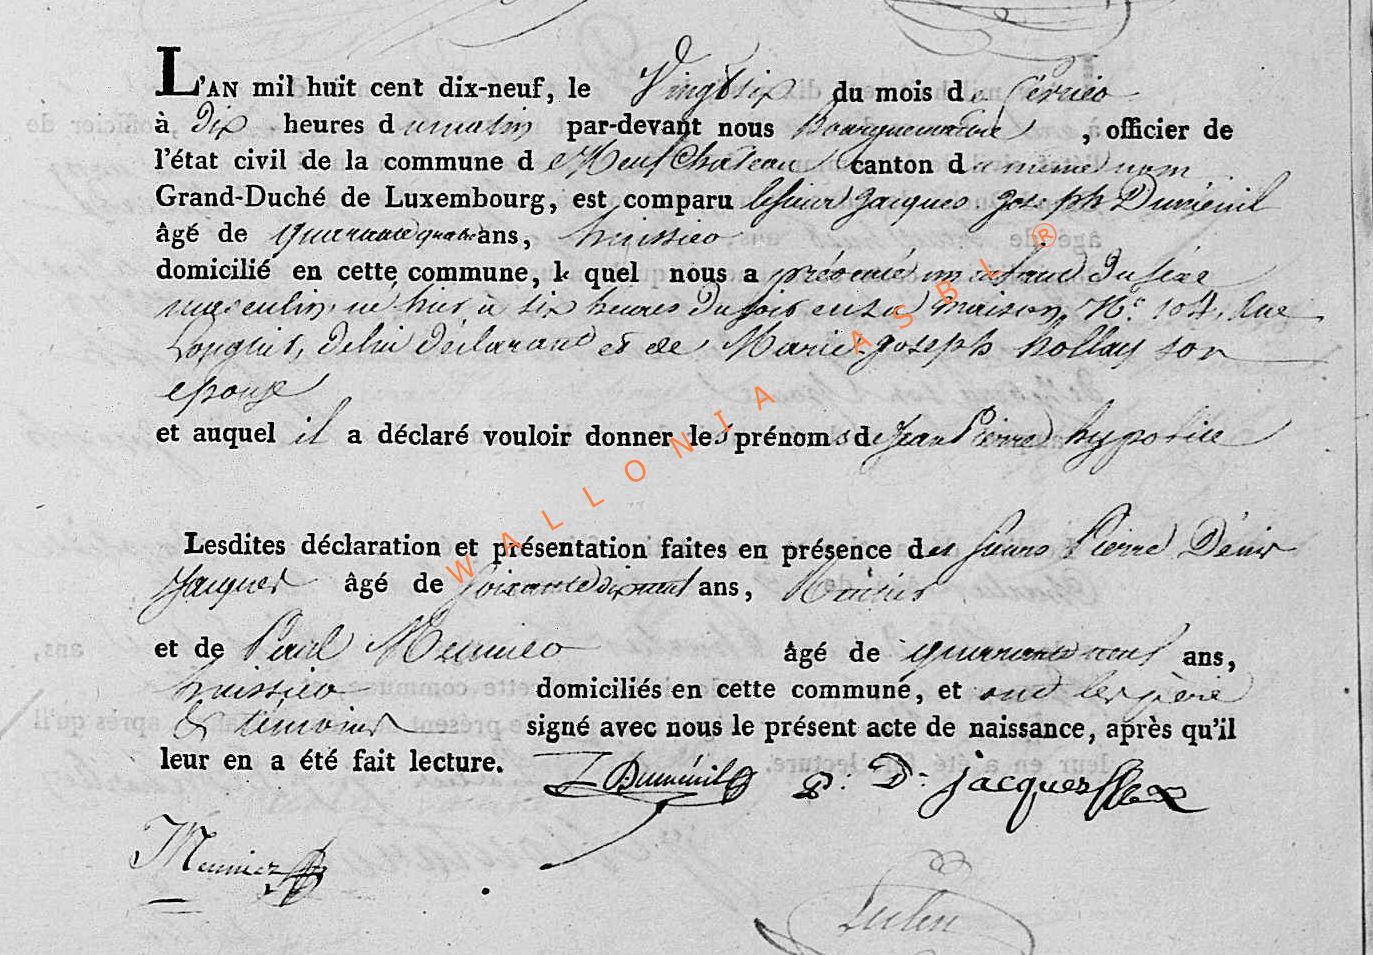 L'AN mil huit cent dix-neuf, le Vingt six du mois de février
à Dix heures du matin par-devant nous Bourguemaitre, officier de
l'état civil de la commune de Neufchateau canton du même nom
Grand-Duché de Luxembourg, est comparu le sieur Jacques Joseph Duménil
âgé de quarante quatre ans, huissier
domicilié en cette commune, le quel nous a présenté un enfant du sexe
masculin, né hier, à six heures du soir en sa maison, No. 104, Rue
de lui déclarant et de Marie-Joseph hollay son
epouse
et auquel il a déclaré vouloir donner les prénoms de Jean Pierre hypolite
Lesdites déclaration et présentation faites en présence des sieurs Pierre Denis
Jacques âgé de ans,
et de Paul Meunier âgé de quarante neuf ans,
huissier domiciliés en cette commune, et ont les père
& témoins signé avec nous le présent acte de naissance, après qu'il
leur en a été fait lecture.
Duménil P. D. Jacques
Meunier
WALLONIA ASBL ®